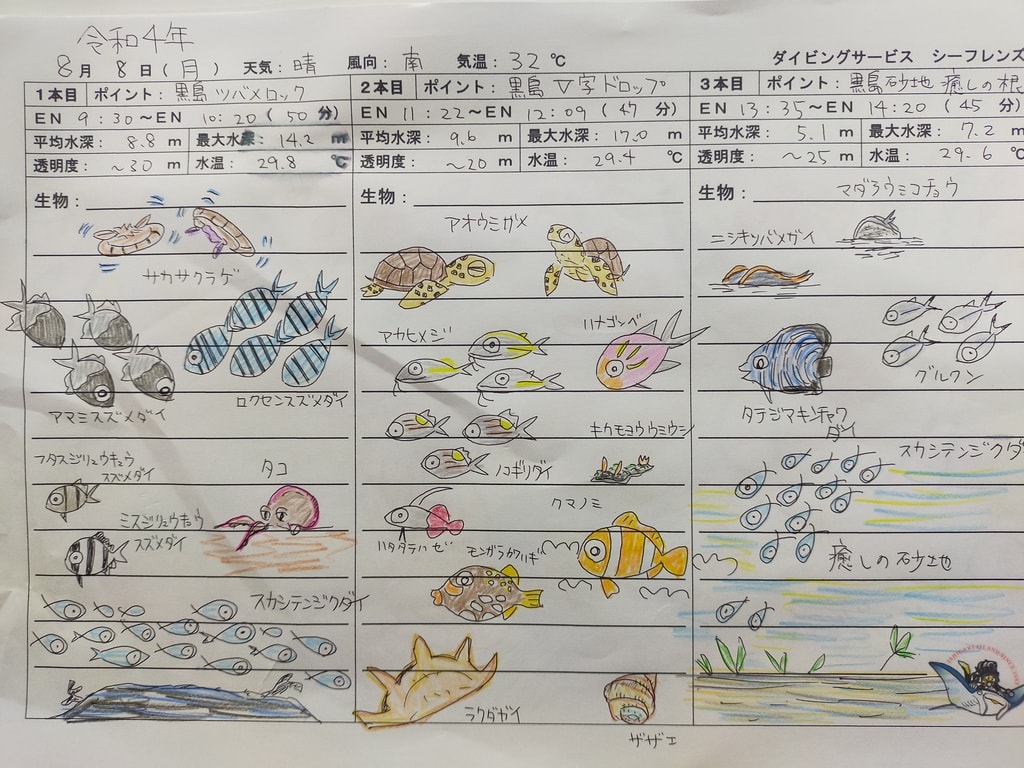 令和4年
8月 8日(月) 天気: 晴 風向: 南 気温: 32℃
ダイビングサービス シーフレンズ
1本目 ポイント: 黒島 ツバメロック
EN 9:30~EN 10:20(50分)
平均水深: 8.8 m 最大水深: 14.2 m
透明度: ~30 m 水温: 29.8 ℃
生物:
サカサクラゲ
アマミスズメダイ
ロクセンスズメダイ
フタスジリュウキュウ
スズメダイ
タコ
ミスジリュウキュウ
スズメダイ
スカシテンジクダイ
2本目 ポイント: 黒島 V字ドロップ
EN 11:22~EN 12:09(47分)
平均水深: 9.6 m 最大水深: 17.0 m
透明度: ~20 m 水温: 29.4 ℃
生物:
アオウミガメ
アカヒメジ
ハナゴンベ
キクモヨウウミウシ
ノコギリダイ
クマノミ
ハタタテハゼ
モンガラカワハギ
ラクダガイ
サザエ
3本目 ポイント: 黒島 砂地 癒しの根
EN 13:35~EN 14:20(45分)
平均水深: 5.1 m 最大水深: 7.2 m
透明度: ~25 m 水温: 29.6 ℃
生物:
マダラウミコチョウ
ニシキツバメガイ
グルクン
タテジマキンチャク
ダイ
スカシテンジクダ
癒しの砂地